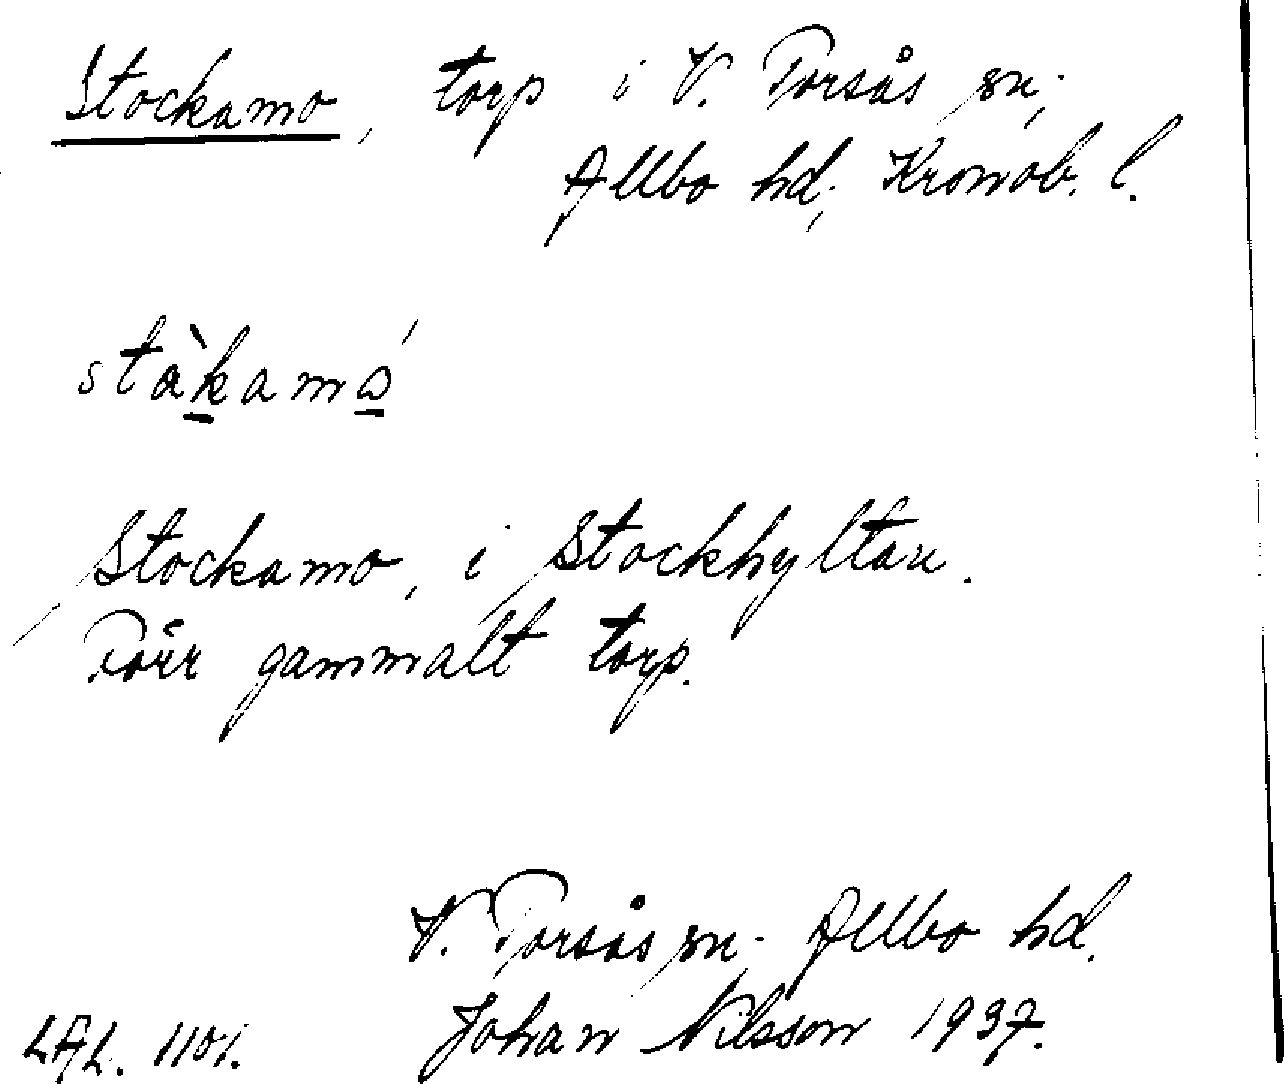 Stockamo, torp i V. Torsås sn;
Allbo hd; Kronob. l.
stàkamó
Stockamo, i Stockhyltan.
gammalt torp.
V. Torsås sn. Allbo hd.
LAL. 1101. Johan Nilsson 1937.